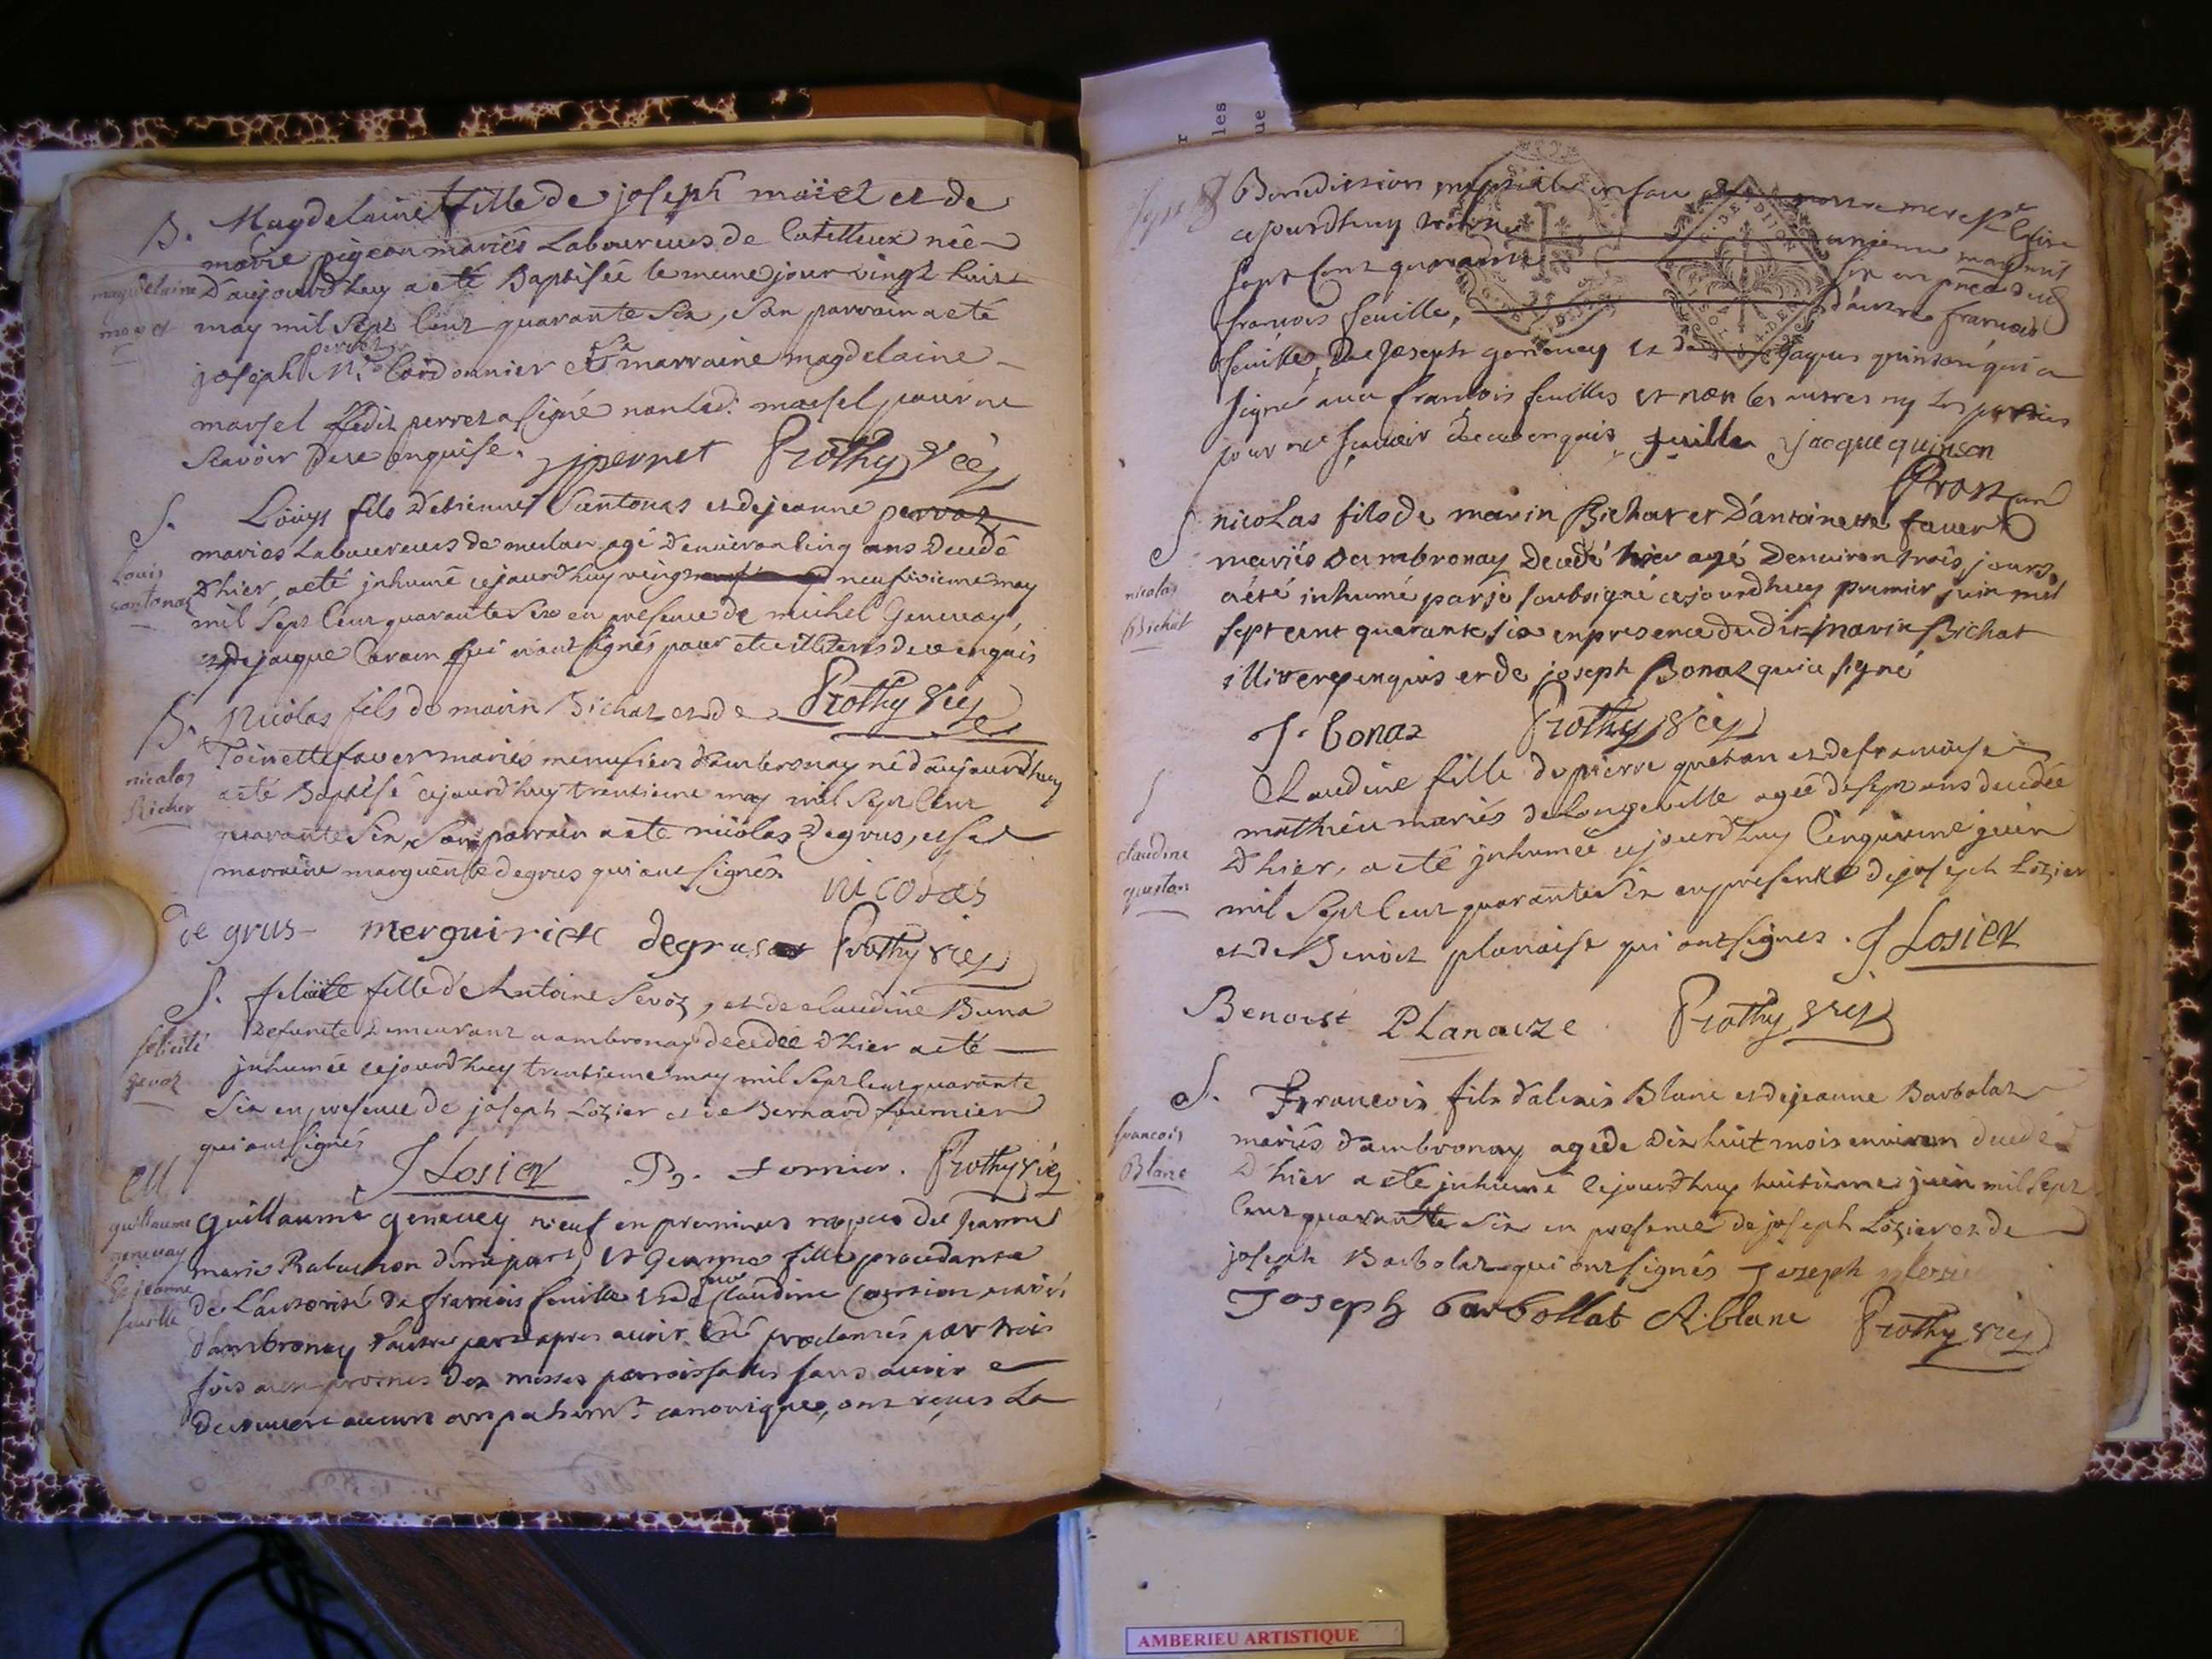 B. Magdelaine fille de joseph maïet et de
marie pigeon mariés Laboureurs de née
magdelaine
d'aujourd'huy a eté Baptisée le meme jour vingt huit
may mil sept cent quarante six, son parrain a eté
perret
joseph cordonnier et sa marraine magdelaine
marsel ledit perret a signé non lad. marsel pour ne
scavoir de ce enquise. jperret Prothy vic
S. Louys fils d'etienne santonas et de jeanne perroz
Louis santonas
mariés Laboureurs de agé d'environ cinq ans decedé
d'hier, a eté inhumé cejourd'huy vingt neufvieme may
mil sept cent quarante six en presence de michel Genevay,
et de jacque qui n'ont signés pour etre illiterés de ce enquis
Prothy vic
B. nicolas fils de marin Bichat et de
nicolas Bichat
Toinette faver mariés menusiers d'ambronay né d'aujourd'huy
a eté Baptisé cejourd'huy trentieme may mil sept cent
quarante six, son parrain a eté nicolas Degrus, et sa
marraine marguerite degrus qui ont signés.
nicolas
de grus merguirite degrus Prothy vic
S. felicité fille d'Antoine Sevoz, et de claudine Buna
felicité sevoz
defunte demeurant a ambronay decedée d'hier a eté
inhumée cejourd'huy trentieme may mil sept cent quarante
six en presence de joseph Lozier et de Bernard fournier
qui ont signés
J Losier B. fornier. Prothy vic
M
guillaume genevay et jeanne feuille
guillaume genevey veuf en premieres nopces de jeanne
marie Rabuchon d'une part, et jeanne fille procedante
de l'autorité de francois feuille et de feue claudine mariés
d'ambronay d'autre part apres avoir eté proclamés par trois
fois aux prones des messes parroissialles sans avoir
decouvert aucun canonique, ont reçus la
Benediction nuptiale en face de nostre mere ste Eglise
cejourd'huy trente unieme may mil
sept cent quarante six en presence de
francois feuille, d'autre francois
feuille, de Joseph genevey et de Jaques quinson qui a
signé avec francois feuilles et non les autres ny les parties
pour ne sçavoir de ce enquis, feuille jacque quinson
Prost curé
S nicolas fils de marin Bichat et d'antoinette faver
nicolas Bichat
mariés d'ambronay decedé hier agé d'environ trois jours
a été inhumé par je soubsigné cejourd'huy premier juin mil
sept cent quarante six en presence dudit marin Bichat
illiteré enquis et de joseph Bonaz qui a signé
J. bonaz Prothy vic
S Claudine fille de pierre guetan et de francoise
claudine guetan
mathieu mariés de Longeville agée de sept ans decedée
d'hier, a eté inhumée cejourd'huy cinquieme juin
mil sept cent quarante six en presence de joseph Lozier
et de Benoit planaise qui ont signés. J Losier
Benoist Planaize Prothy vic
S. Francois fils d'alexis Blanc et de jeanne Barbolat
francois Blanc
mariés d'ambronay agé de dix huit mois environ decedé
d'hier a eté inhumé cejourd'huy huitieme juin mil sept
cent quarante six en presence de joseph Lozier et de
joseph Barbolat qui ont signés Joseph
Joseph barbollat A. blanc Prothy vic
AMBERIEU ARTISTIQUE